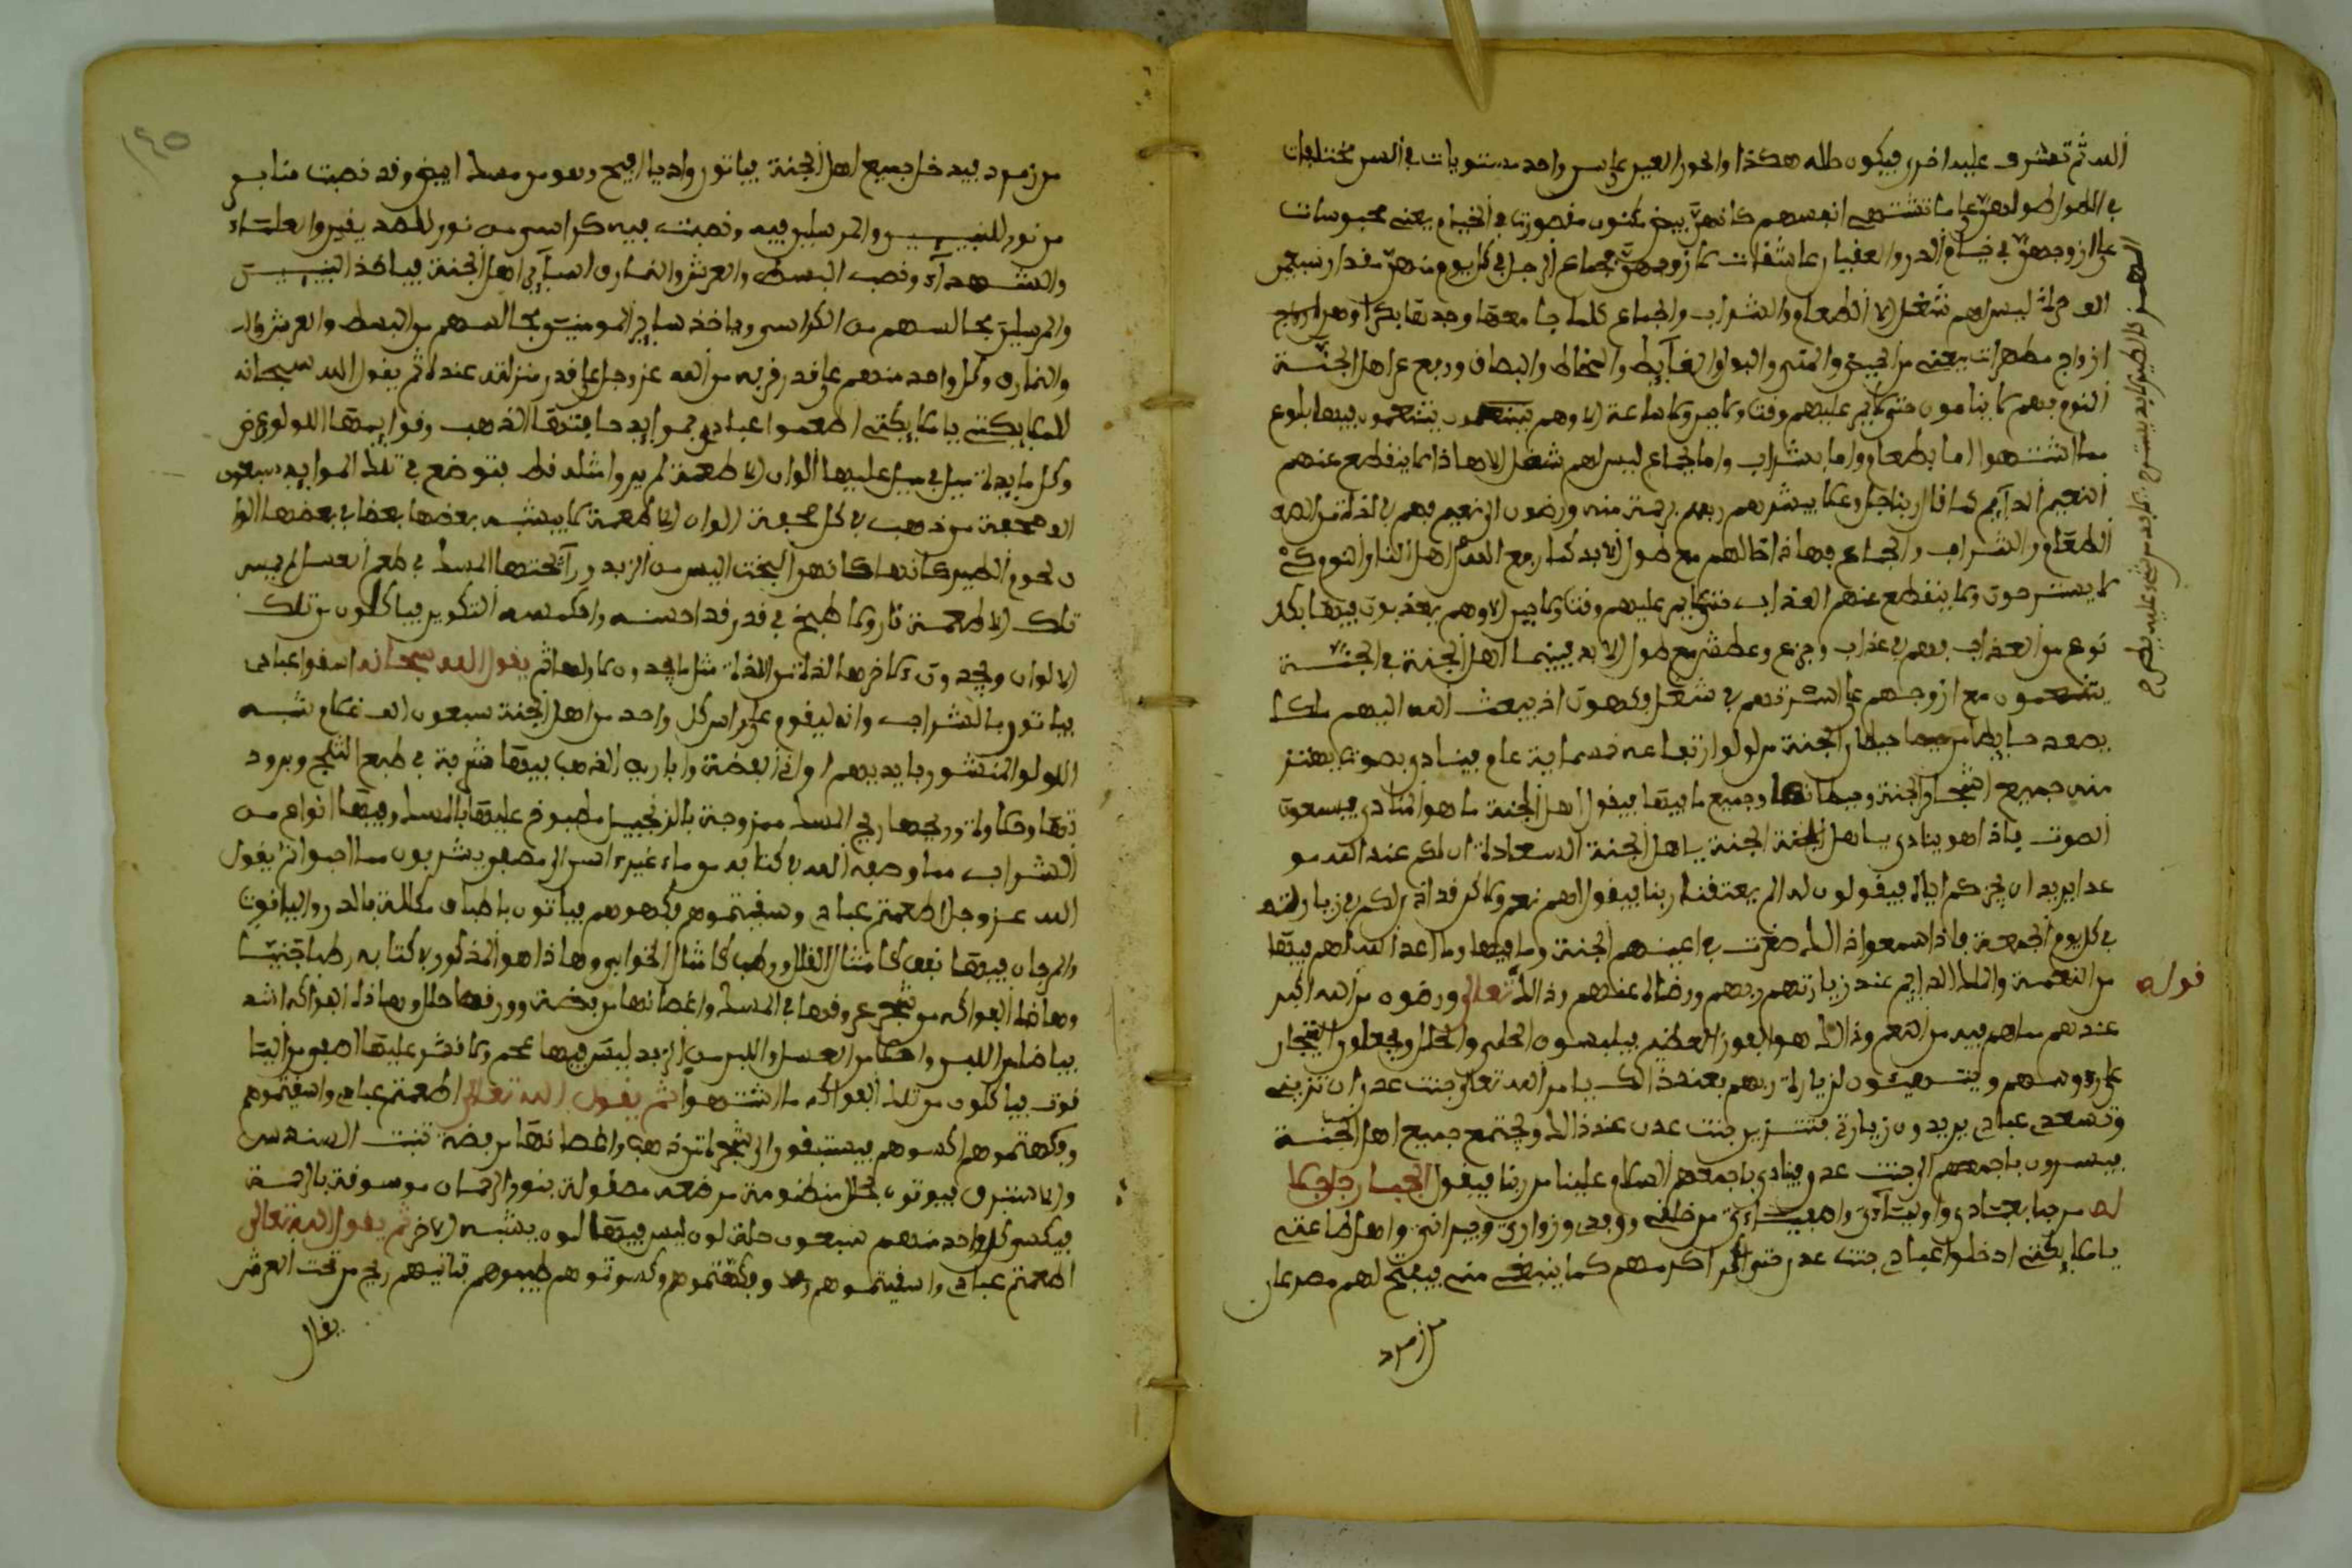 الله ثم تشرف عليه اخرى فيكون حاله هكذا والحور العين على سن واحد مستويات في السن مختلفات
في اللهو اطوالهن على ما تشتهي انفسهم كانهن بيض مكنون مقصورات في الخيام يعني محبوسات
على ازوجهن في خيام الدر والعقيان عاشقات لازوجهن جماع الرجل في كل يوم منهن مقدار سبعين
الف مراة ليس لهم شغل الا الطعام والشراب والجماع كلما جامعها وجدها بكرا وهن
ازواج مطهرات يعني من الحيض والمني والبول والغايط والمخاط والبصاق ورفع عن اهل الجنة
النوم فهم لا ينامون حتى لا يمر عليهم وقت ولا حين ولا ساعة الا وهم يتنعمون فيها بنوع
مما اشتهوا اما بطعام واما بشراب واما بجماع ليس لهم شغل الا هاذا لا ينقطع عنهم
النعيم الدآيم كما قال ربنا جل وعلا يبشرهم ربهم برحمة منه ورضون الى نعيم فهم في لذاة من الله
الطعام والشراب والجماع فهاذا حالهم مع طول الابد كما رفع الله عن اهل النار النوم
لا يستريحون ولا ينقطع عنهم العذاب حتى لا يمر عليهم وقت ولا حين الا وهم يعذبون فيها بكل
نوع من العذاب فهم في عذاب وجوع وعطش مع طول الابد فبينما اهل الجنة في الجنة
يتنعمون مع ازوجهم على الاسرة فهم في شغل فكهون اذ يبعث الله اليهم ملكا
يصعد حايطا من حيطان الجنة من لولو ارتفاعه خمسماية عام فينادي بصوت يهتز
منه جميع اشجار الجنة وحيطانها وجميع ما فيها فيقول اهل الجنة ما هو المنادي فيسمعون
الصوت فاذا هو ينادي يا اهل الجنة الجنة يا اهل الجنة السعاداة ان لكم عند الله مو
عدا يريد ان ينجزكم اياه فيقولون له الم يعتقنا ربنا فيقول لهم نعم ولاكن قد اذن لكم في زيارته
في كل يوم الجمعة فاذا سمعوا ذالك صغرت في اعينهم الجنة وما فيها وما اعد الله لهم فيها
من النعمة والملك الدايم عند زيارتهم ربهم ورضاه عنهم وذالك قوله تعالى ورضون من الله اكبر
عندهم مما هم فيه من النعم وذالك هو الفوز العظيم فيلبسون الحلي والحلل ويجعلون التيجار
على رءوسهم ويتهيئون لزياراة ربهم بعند ذالك يامر الله تعالى جنت عدن ان تزيني
وتسعدي عبادي يريدون زيارتي فتتزين جنت عدن عند ذالك ويجتمع جميع اهل الجنة
فيسيرون باجمعهم الى جنت عدن فينادي باجمعهم السلام علينا من ربنا فيقول الجبار جل جلا
له مرحبا بعبادي واوليآءي واصفيآءي من خلقي ووفدي وزواري وجيراني واهل طاعتي
يا ملايكتي ادخلوا عبادي جنت عدن حتى اكرمهم كما ينبغي مني فيفتح لهم مصرعان
من زمرد
من زمرد فيدخل جميع اهل الجنة فياتون واديا افيح وهو من مسك ابيض وقد نصبت منابر
من نور للنبيين والمرسلين فيه ونصبت فيه كراسي من نور للصديقين والعلمآء
والشهدآء ونصب البسط والعرش والنمارق لسآير اهل الجنة فياخذ النبيين
والمرسلين مجالسهم من الكراسي وياخذ ساير المومنين مجالسهم من البسط والعرش
والنمارق وكل واحد منهم على قدر قربه من الله عز وجل على قدر منزلته عنده ثم يقول الله سبحانه
للملايكتي يا ملايكتي اطعموا عبادي موايد حافتها الذهب وقوايمها اللولو عرض
وكل مايدة ميل في ميل عليها الوان الاطعمة لم يروا مثله قط فتوضع في تلك الموايد سبعون
الف صحفة من ذهب في كل صحفة الوان الاطعمة لا يشبه بعضها بعضا في بعضها الوا
ن لحوم الطير كانها كانهوا البخت الين من الزبد ورآيحتها المسك في طعم العسل لم يمس
تلك الاطعمة نار ولا طبخ في قدر قد احسنه واحكمه التكوير فياكلون من تلك
الالوان ويجدون لاخرها لذاة من اللذاة مثل ما يجدون لاولها ثم يقول الله سبحانه اسقوا عبادي
فياتون بالشراب وانه ليقوم على راس كل واحد من اهل الجنة سبعون الف غلام شبه
اللولو المنثور بايديهم اواني الفضة واباريق الذهب فيها شربة في طبع الثلج وبرود
تها وحلاوة وريحها ريح المسك ممزوجة بالزنجبيل مطبوع عليها بالمسك وفيها انواع من
الشراب مما وصف الله في كتابه من ماء غير اسن الى مصفى يشربون مما احبوا ثم يقول
الله عز وجل اطعمتم عبادي وسقيتموهم فكهوهم فياتون باطباق مكللة بالدر والياقوت
والمرجان فيها نبق كامثال القلال ورطب كامثال الخوابي وهاذا هو المذكور في كتابه رطبا جنيا
وهاذا الفواكه من شجر عروقها في المسك واغصانها من فضة وورقها حلل وهاذه الفواكه اشد
بياضا من اللبن واحلا من العسل والين من الزبد ليس فيها عجم ولا قشر عليها اصفى من اليا
قوت فياكلون من تلك الفواكه ما اشتهوا ثم يقول الله تعالى اطعمتم عبادي واسقيتموهم
وفكهتموهم اكسوهم فيستبقون الى شجراة من ذهب واغصانها من فضة تنبت السندس
والاستبرق فيوتون بحلل منظومة من فضة مصقولة بنور الرحمان موسومة بالرحمة
فيكسى كل واحد منهم سبعون حلة لون ليس فيها لون يشبه الاخر ثم يقول الله تعالى
اطعمتم عبادي واسقيتموهم وفكهتموهم وكسوتموهم طيبوهم فتاتيهم ريح من تحت العرش
يقال
١٤٥